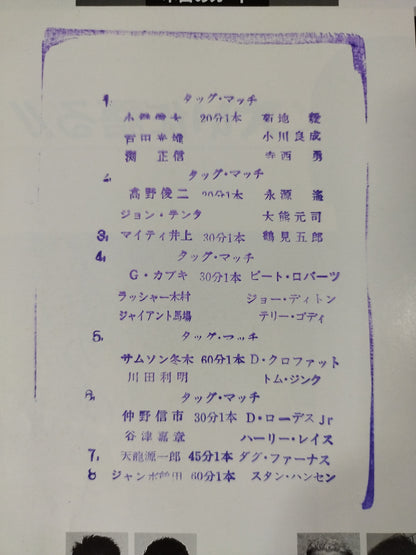 1. タッグ・マッチ
20分1本 菊地 毅
小川良成
渕 正信 寺西 勇
2. タッグ・マッチ
高野俊二 20分1本 永源 遙
ジョン・テンタ 大熊元司
3. マイティ井上 30分1本 鶴見五郎
4. タッグ・マッチ
G・カブキ 30分1本 ピート・ロバーツ
ラッシャー木村 ジョー・ディトン
ジャイアント馬場 テリー・ゴディ
5. タッグ・マッチ
サムソン冬木 60分1本 D・クロファット
川田利明 トム・ジンク
6. タッグ・マッチ
仲野信市 30分1本 D・ローデス Jr
谷津嘉章 ハーリー・レイス
7. 天龍源一郎 45分1本 ダグ・ファーナス
8 ジャンボ鶴田 60分1本 スタン・ハンセン